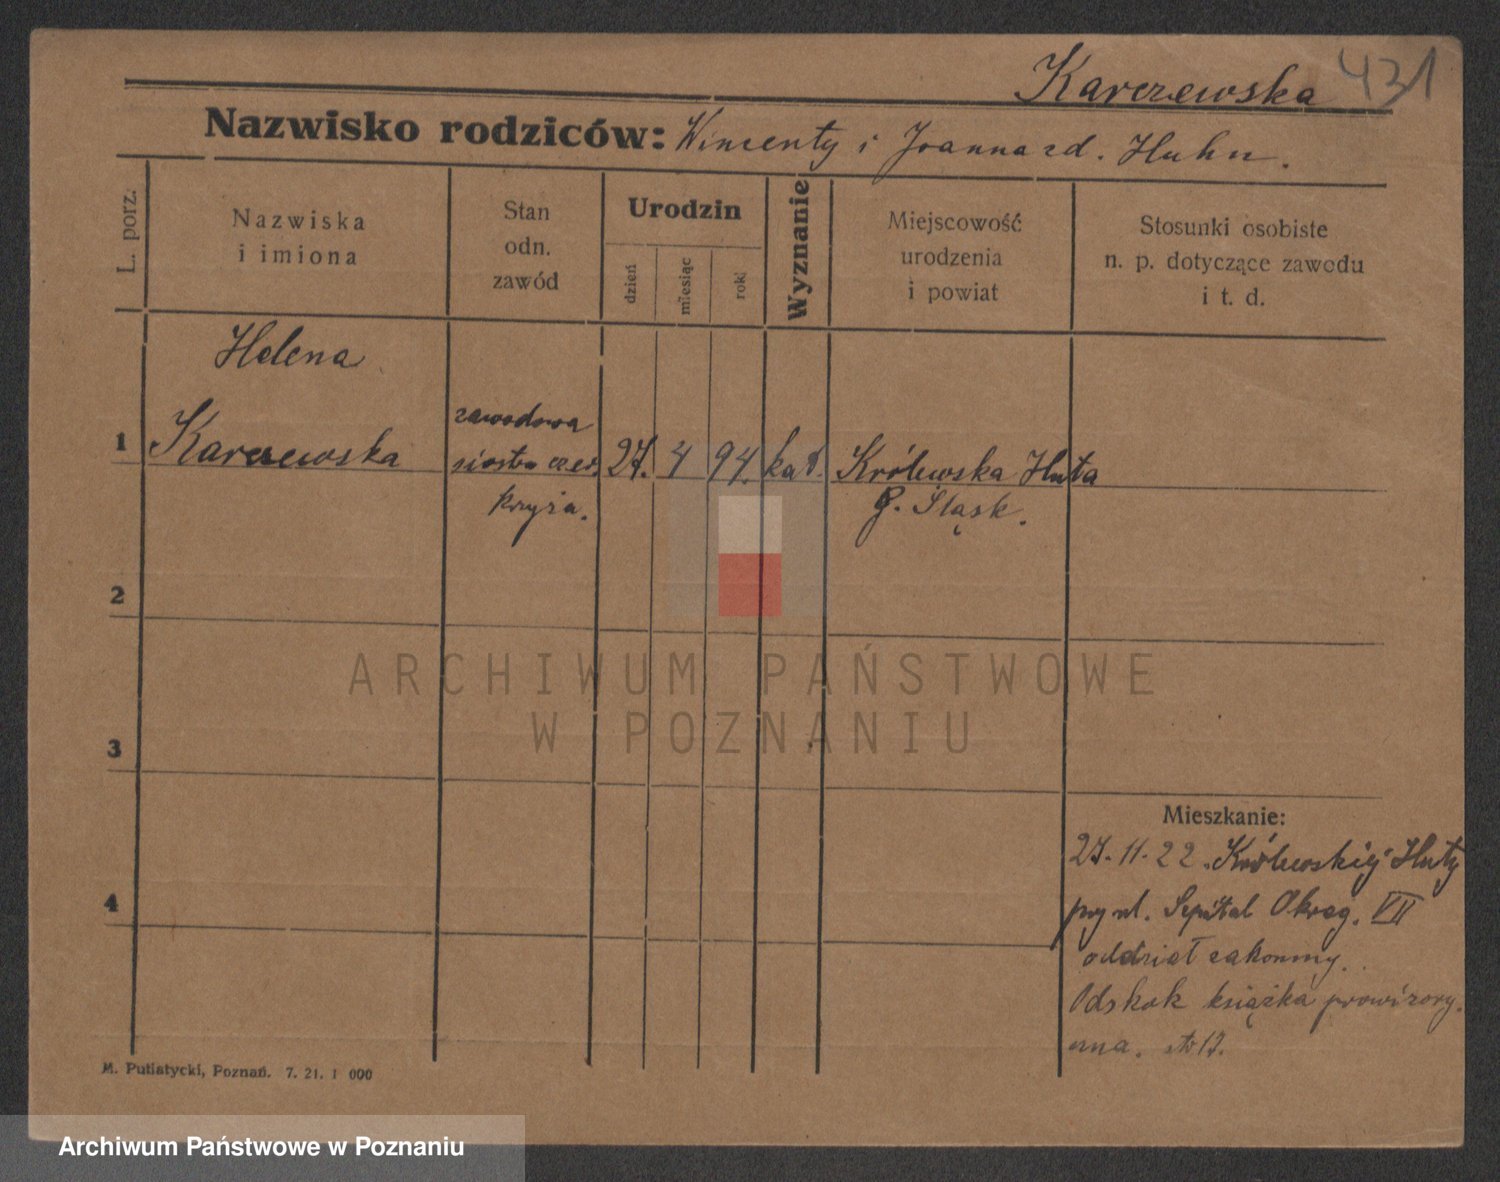 Karczewska 431
Nazwisko rodziców: Wincenty i Joanna zd. Huhn.
L. porz.
Nazwiska
i imiona
Stan
odn.
zawód
Urodzin
dzień
miesiąc
rok
Wyznanie
Miejscowość
urodzenia
i powiat
Stosunki osobiste
n. p. dotyczące zawodu
i t. d.
Helena
1 Karczewska
zawodowa
siostra czer.
krzyża.
27. 4 94. kat.
Królewska Huta
G. Śląsk.
2
ARCHIWUM PAŃSTWOWE
W POZNANIU
3
4
Mieszkanie:
27.11.22. Królewskiej Huty
Szpital Okręg. VII
oddział zakonny.
książka prowizory.
M. Putiatycki, Poznań. 7. 21. 1 000
Archiwum Państwowe w Poznaniu